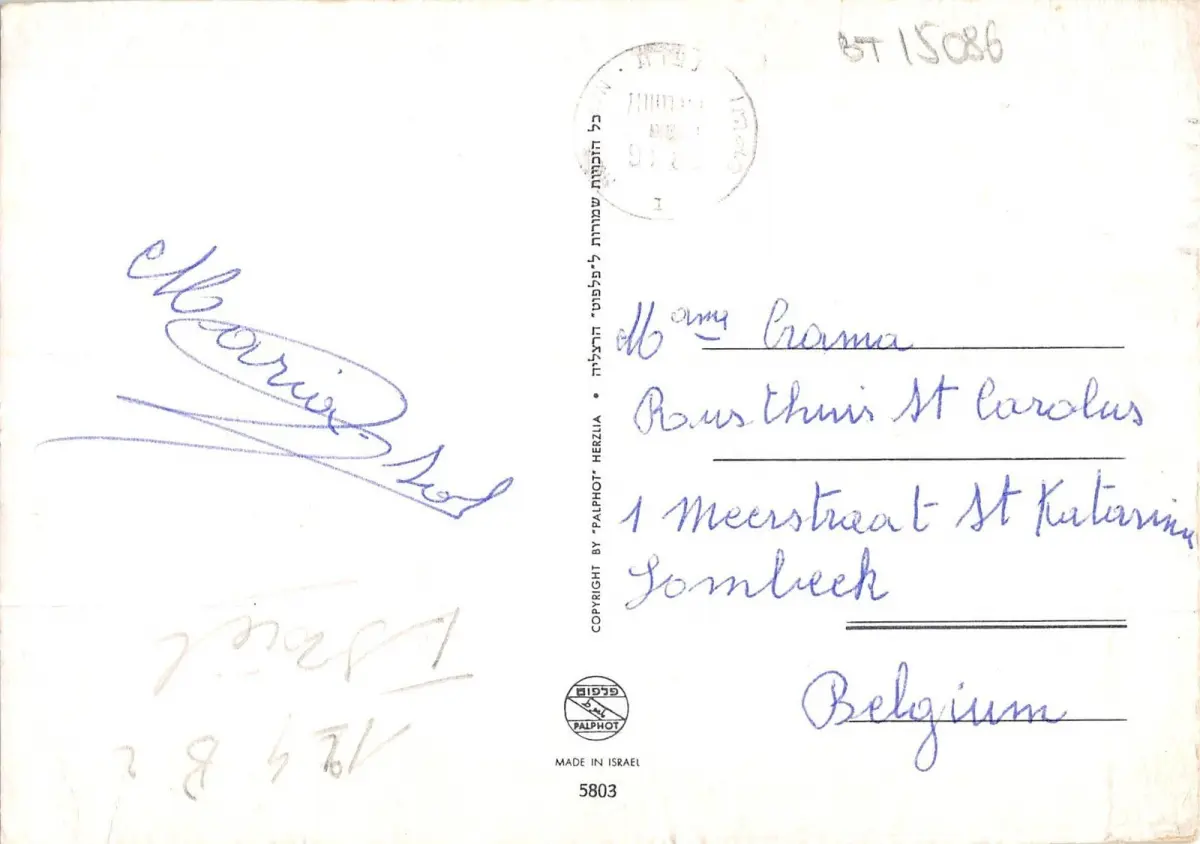 BT 15086
Maria
M ame Crama
Rusthuis St Carolus
1 Meerstraat St Katarina
Lombeek
Belgium
COPYRIGHT BY "PALPHOT" HERZLIA • כל הזכויות שמורות ל"פלפוט" הרצליה
Israël
פלפוט
PALPHOT
MADE IN ISRAEL
5803